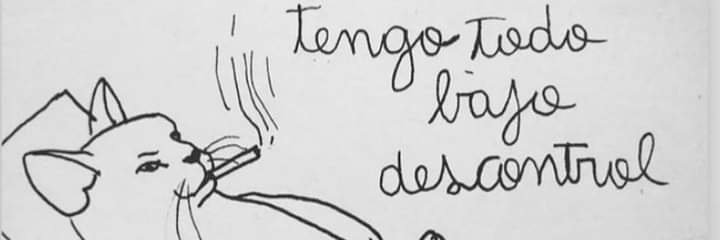 tengo todo
bajo
descontrol